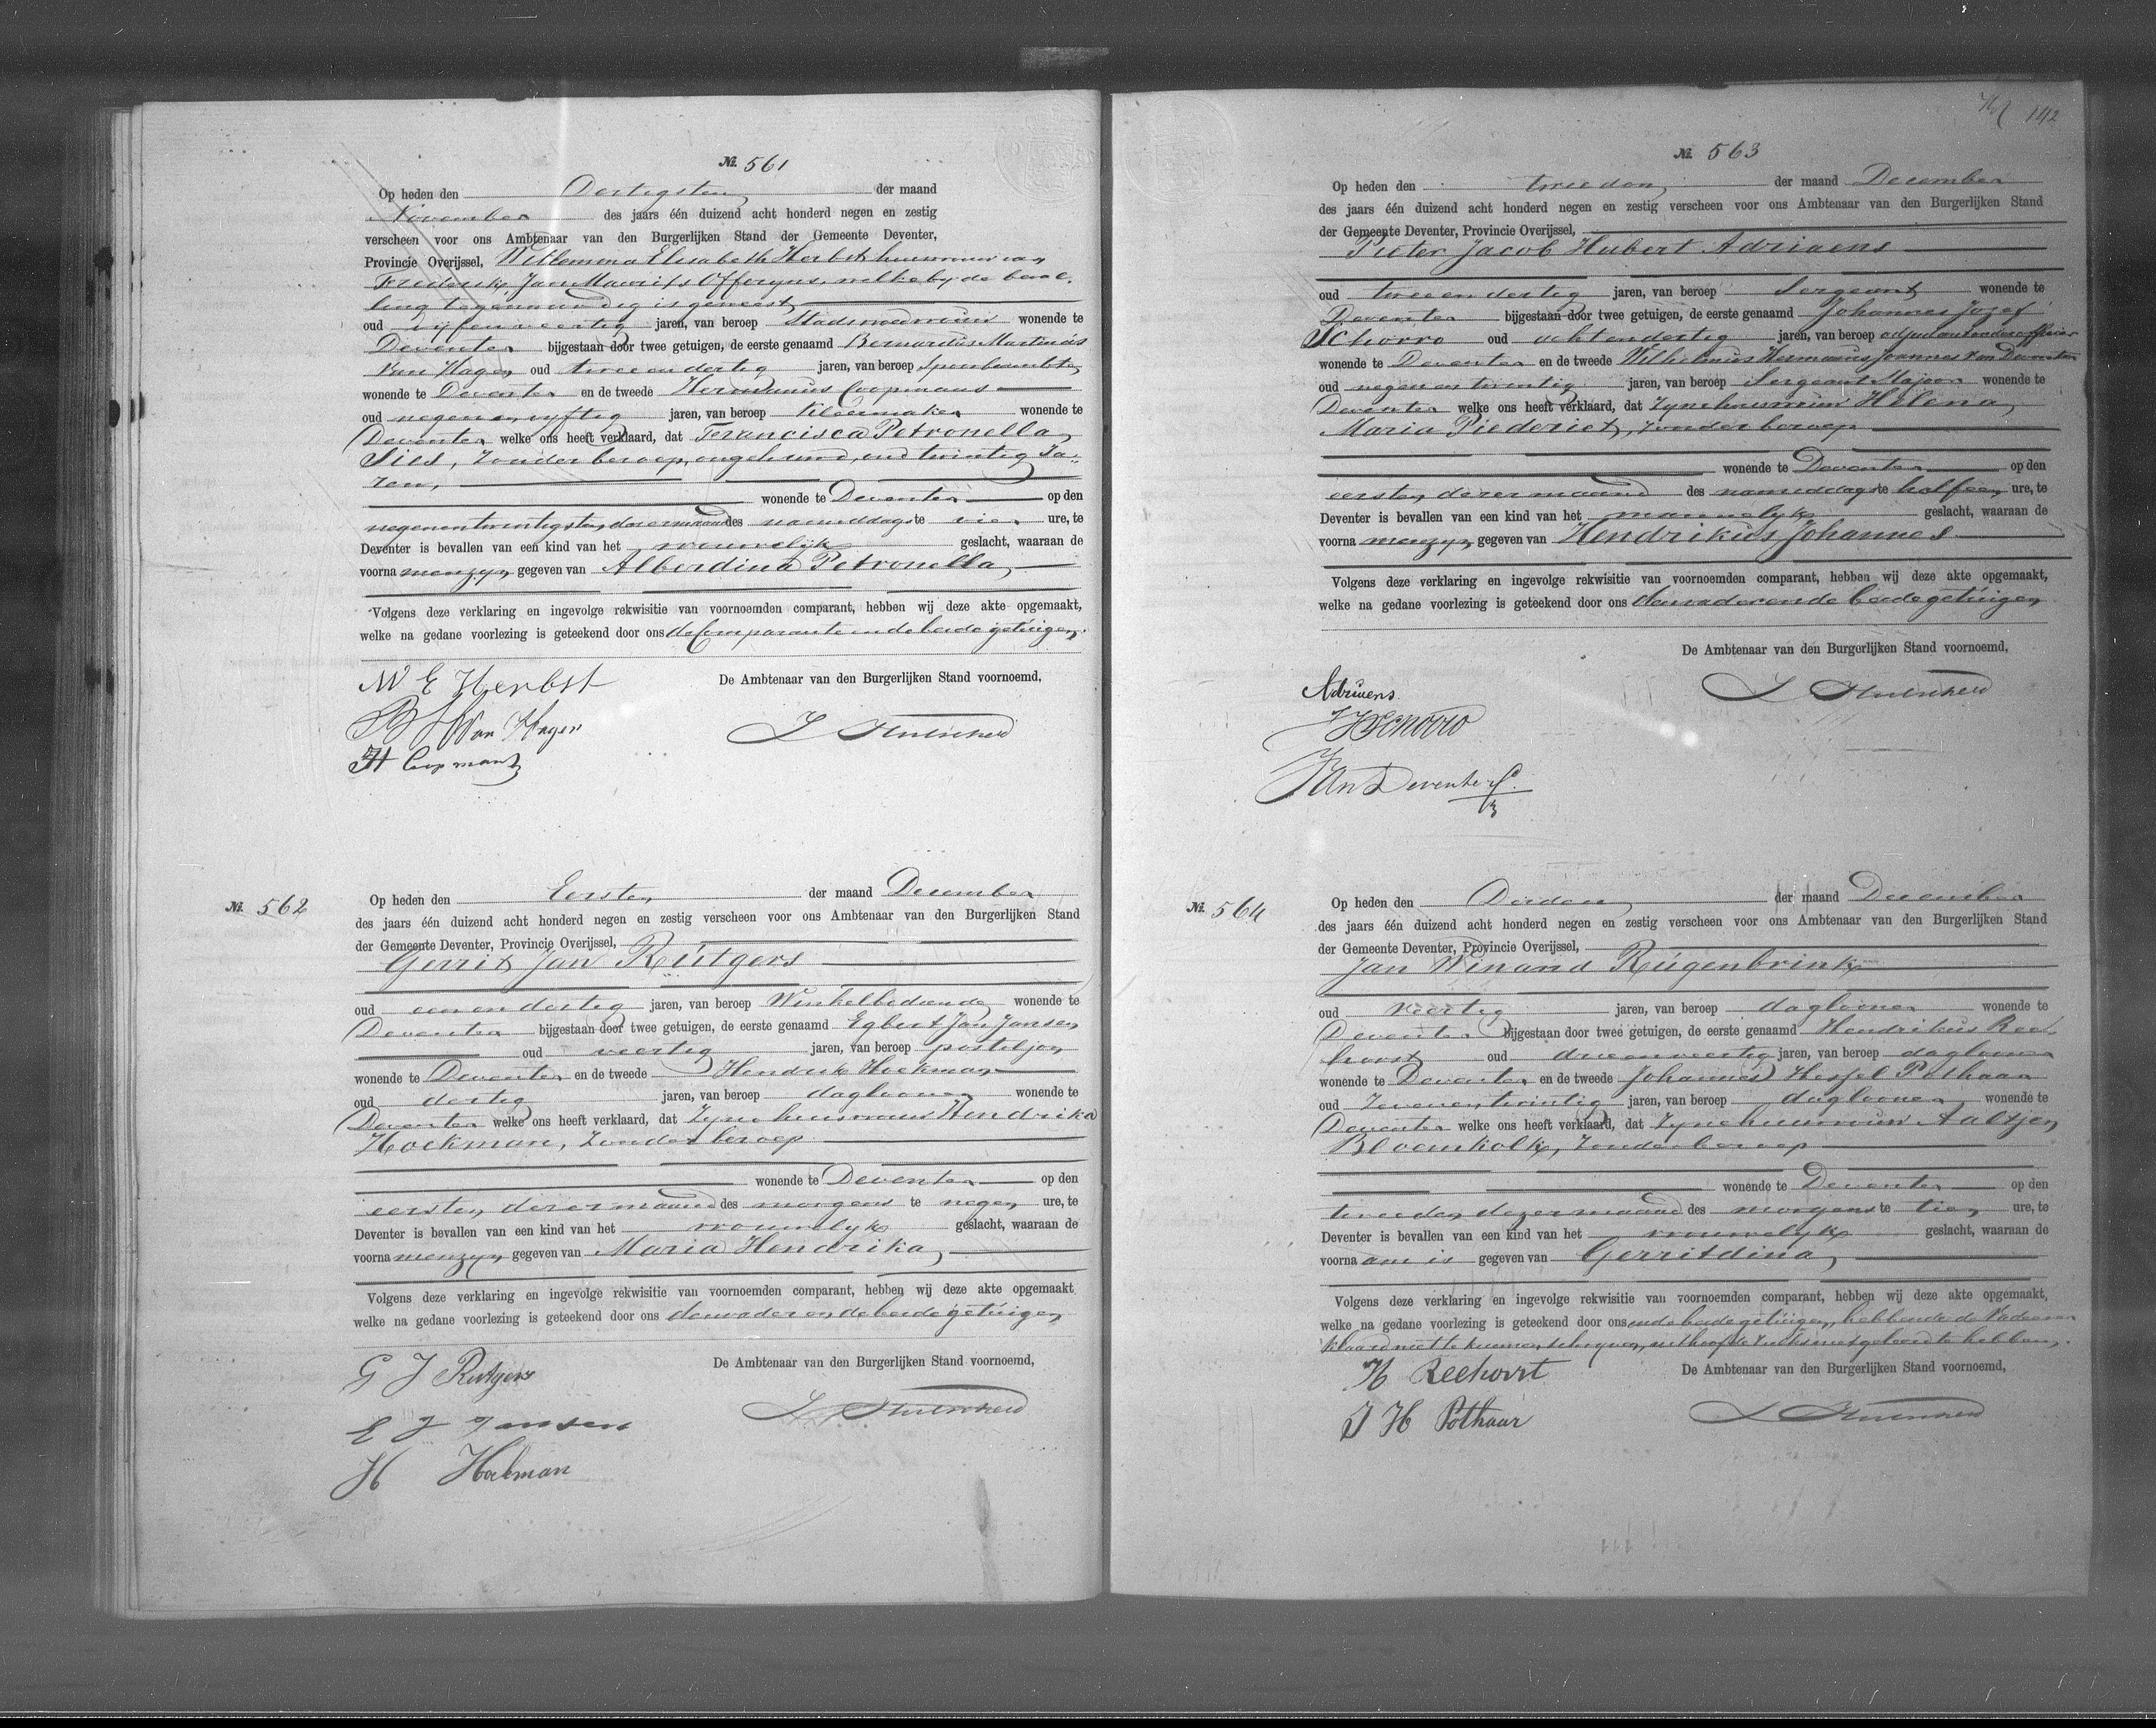 № 561
Op heden den Dertigsten der maand
November des jaars één duizend acht honderd negen en zestig
verscheen voor ons Ambtenaar van den Burgerlijken Stand der Gemeente Deventer,
Provincie Overijssel, Willemina Elisabeth Herbst huisvrouw van
Frederik Jan Maurits Offeryns, welke by de beval-
ling tegenwoordig is geweest
oud vyfenveertig jaren, van beroep Stadsvroedvrouw wonende te
Deventer bijgestaan door twee getuigen, de eerste genaamd Bernardus Martinus
van Hagen oud tweeendertig jaren, van beroep Spoorbeambte
wonende te Deventer en de tweede Hermanus Coopmans
oud negenenvyftig jaren, van beroep kleermaker wonende te
Deventer welke ons heeft verklaard, dat Francisca Petronella
Sies, zonder beroep, ongehuwd, oud twintig Ja-
ren, wonende te Deventer op den
negenentwintigsten dezer maand des namiddags te vier ure, te
Deventer is bevallen van een kind van het vrouwelijk geslacht, waaraan de
voornamen zyn gegeven van Alberdina Petronella
Volgens deze verklaring en ingevolge rekwisitie van voornoemden comparant, hebben wij deze akte opgemaakt,
welke na gedane voorlezing is geteekend door ons de Comparante en de beide getuigen.
De Ambtenaar van den Burgerlijken Stand voornoemd,
W E Herbst
B M Van Hagen
H Coopmans
№ 562
Op heden den Eersten der maand December
des jaars één duizend acht honderd negen en zestig verscheen voor ons Ambtenaar van den Burgerlijken Stand
der Gemeente Deventer, Provincie Overijssel,
Gerrit Jan Rutgers
oud eenendertig jaren, van beroep Winkelbediende wonende te
Deventer bijgestaan door twee getuigen, de eerste genaamd Egbert Jan Jansen
oud veertig jaren, van beroep postiljon
wonende te Deventer en de tweede Hendrik Hoekman
oud dertig jaren, van beroep daglooner wonende te
Deventer welke ons heeft verklaard, dat Zyne huisvrouw Hendrika
Hoekman, zonder beroep
wonende te Deventer op den
eersten dezer maand des morgens te negen ure, te
Deventer is bevallen van een kind van het vrouwelyk geslacht, waaraan de
voornamen zyn gegeven van Maria Hendrika
Volgens deze verklaring en ingevolge rekwisitie van voornoemden comparant, hebben wij deze akte opgemaakt
welke na gedane voorlezing is geteekend door ons den vader en de beide getuigen
De Ambtenaar van den Burgerlijken Stand voornoemd,
G J Rutgers
E J Jansen
H Hoekman
142
№ 563
Op heden den tweeden der maand December
des jaars één duizend acht honderd negen en zestig verscheen voor ons Ambtenaar van den Burgerlijken Stand
der Gemeente Deventer, Provincie Overijssel,
Pieter Jacob Hubert Adriaens
oud tweeendertig jaren, van beroep Sergeant wonende te
Deventer bijgestaan door twee getuigen, de eerste genaamd Johannes Jozef
Schorro oud achtendertig jaren, van beroep adjudantonderofficier
wonende te Deventer en de tweede Wilhelmus Hermanus Joannes van Deventer
oud negenentwintig jaren, van beroep Sergeant Majoor wonende te
Deventer welke ons heeft verklaard, dat Zyne huisvrouw Helena
Maria Piederiet, zonder beroep
wonende te Deventer op den
eersten dezer maand des namiddags te half een ure, te
Deventer is bevallen van een kind van het mannelyk geslacht, waaraan de
voornamen zyn gegeven van Hendrikus Johannes
Volgens deze verklaring en ingevolge rekwisitie van voornoemden comparant, hebben wij deze akte opgemaakt,
welke na gedane voorlezing is geteekend door ons den vader en de beide getuigen
De Ambtenaar van den Burgerlijken Stand voornoemd,
Adriaens.
Schorro
van Deventer
№ 564
Op heden den Derden der maand December
des jaars één duizend acht honderd negen en zestig verscheen voor ons Ambtenaar van den Burgerlijken Stand
der Gemeente Deventer, Provincie Overijssel,
Jan Winand Rugenbrink
oud veertig jaren, van beroep daglooner wonende te
Deventer bijgestaan door twee getuigen, de eerste genaamd Hendrikus Ree-
horst oud drieenveertig jaren, van beroep daglooner
wonende te Deventer en de tweede Johannes Hessel Pothaar
oud Zevenentwintig jaren, van beroep daglooner wonende te
Deventer welke ons heeft verklaard, dat Zyne huisvrouw Aaltjen
Bloemkolk, zonder beroep
wonende te Deventer op den
tweeden dezer maand des morgens te tien ure, te
Deventer is bevallen van een kind van het vrouwelyk geslacht, waaraan de
voornaam is gegeven van Gerritdina
Volgens deze verklaring en ingevolge rekwisitie van voornoemden comparant, hebben wij deze akte opgemaakt,
welke na gedane voorlezing is geteekend door ons en de beide getuigen, hebbende de Vader ver-
klaard niet te kunnen schryven, uit hoofde zulks niet geleerd te hebben.
De Ambtenaar van den Burgerlijken Stand voornoemd,
H Reehorst
J H Pothaar